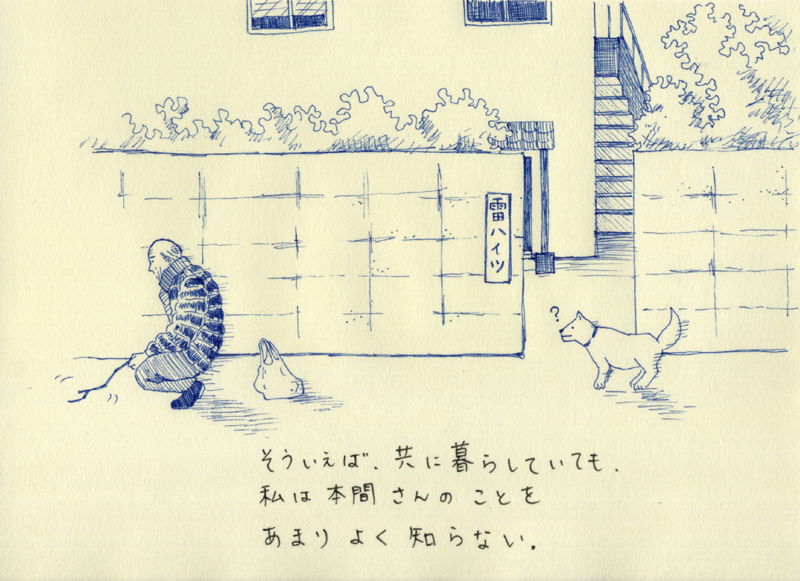 雷ハイツ
?
そういえば、共に暮らしていても、
私は本間さんのことを
あまりよく知らない。